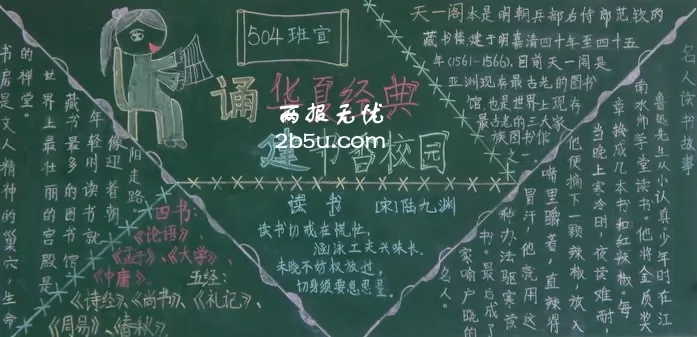 504班宣
诵华夏经典
建书香校园
两报无忧
2b5u.com
读书 [宋]陆九渊
读书切戒在慌忙,
涵泳工夫兴味长。
未晓不妨权放过,
切身须要急思量。
天一阁本是明朝兵部右侍郎范钦的
藏书楼,建于明嘉清四十年至四十五
年(1561-1566),目前天一阁是
亚洲现存最古老的图书
馆,也是世界上现存
最古老的三大家
族图书馆
之一。
名人读书故事
鲁迅先生从小认真。少年时在江
南水师学堂读书,他将金质奖
章换成几本书和红辣椒。每
当晚上寒冷时,夜读难耐,
他便摘下一颗辣椒,放入
嘴里嚼着,直辣得
冒汗,他就用这
种办法驱寒读
书。最后成了
家喻户晓的
名人。
四书:
《论语》
《孟子》、《大学》、
《中庸》。
五经:
《诗经》、《尚书》、《礼记》、
《周易》、《春秋》。
年轻时读书就
像迎着朝
阳走路。
藏书最多的图书馆
世界上最壮丽的宫殿是
书房是文人精神的巢穴,生命
的禅堂。